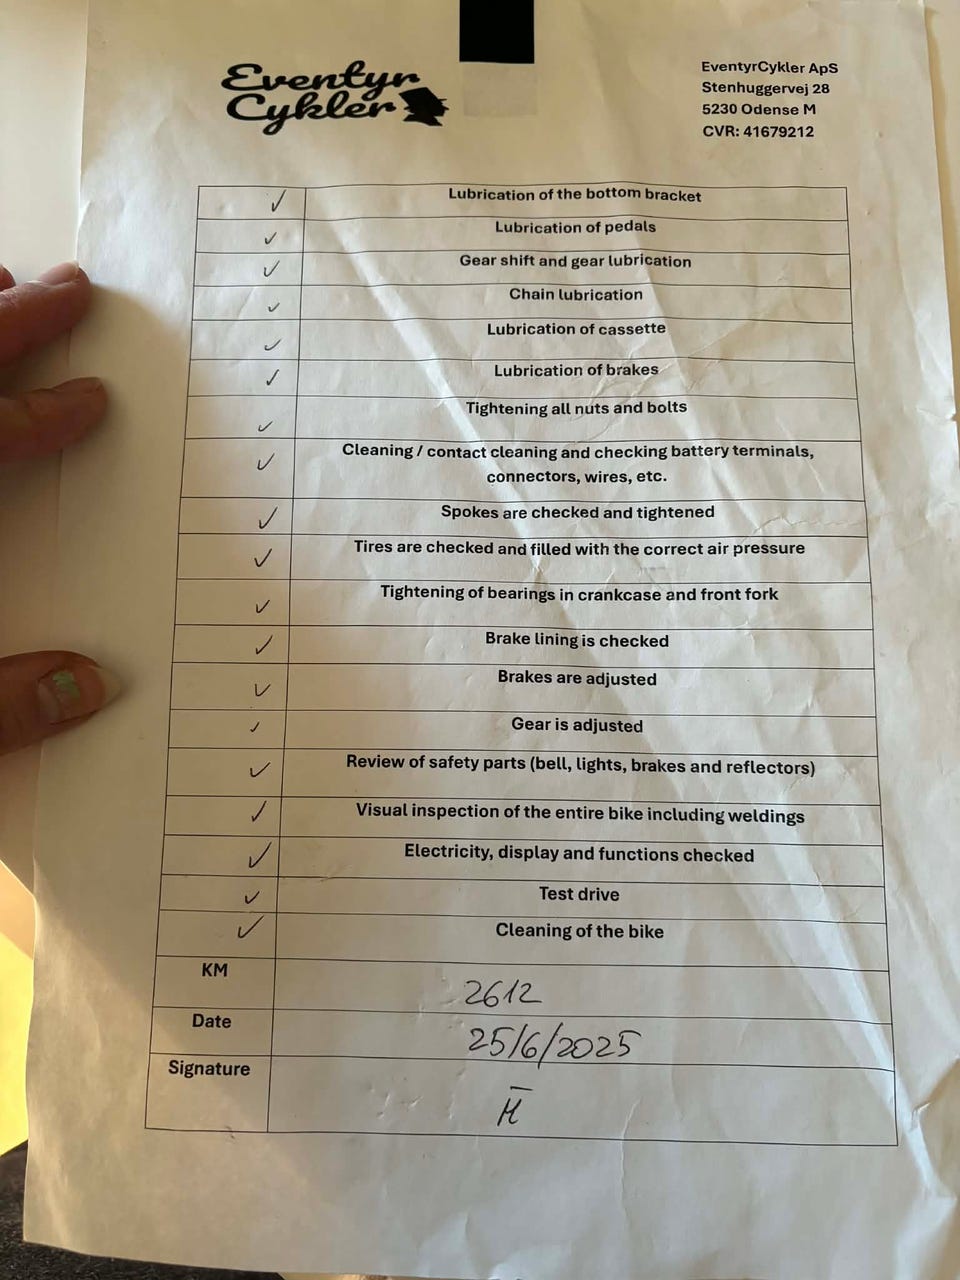 Eventyr
Cykler
EventyrCykler ApS
Stenhuggervej 28
5230 Odense M
CVR: 41679212
✓ Lubrication of the bottom bracket
✓ Lubrication of pedals
✓ Gear shift and gear lubrication
✓ Chain lubrication
✓ Lubrication of cassette
✓ Lubrication of brakes
✓ Tightening all nuts and bolts
✓ Cleaning / contact cleaning and checking battery terminals,
connectors, wires, etc.
✓ Spokes are checked and tightened
✓ Tires are checked and filled with the correct air pressure
✓ Tightening of bearings in crankcase and front fork
✓ Brake lining is checked
✓ Brakes are adjusted
✓ Gear is adjusted
✓ Review of safety parts (bell, lights, brakes and reflectors)
✓ Visual inspection of the entire bike including weldings
✓ Electricity, display and functions checked
✓ Test drive
✓ Cleaning of the bike
KM 2612
Date 25/6/2025
Signature